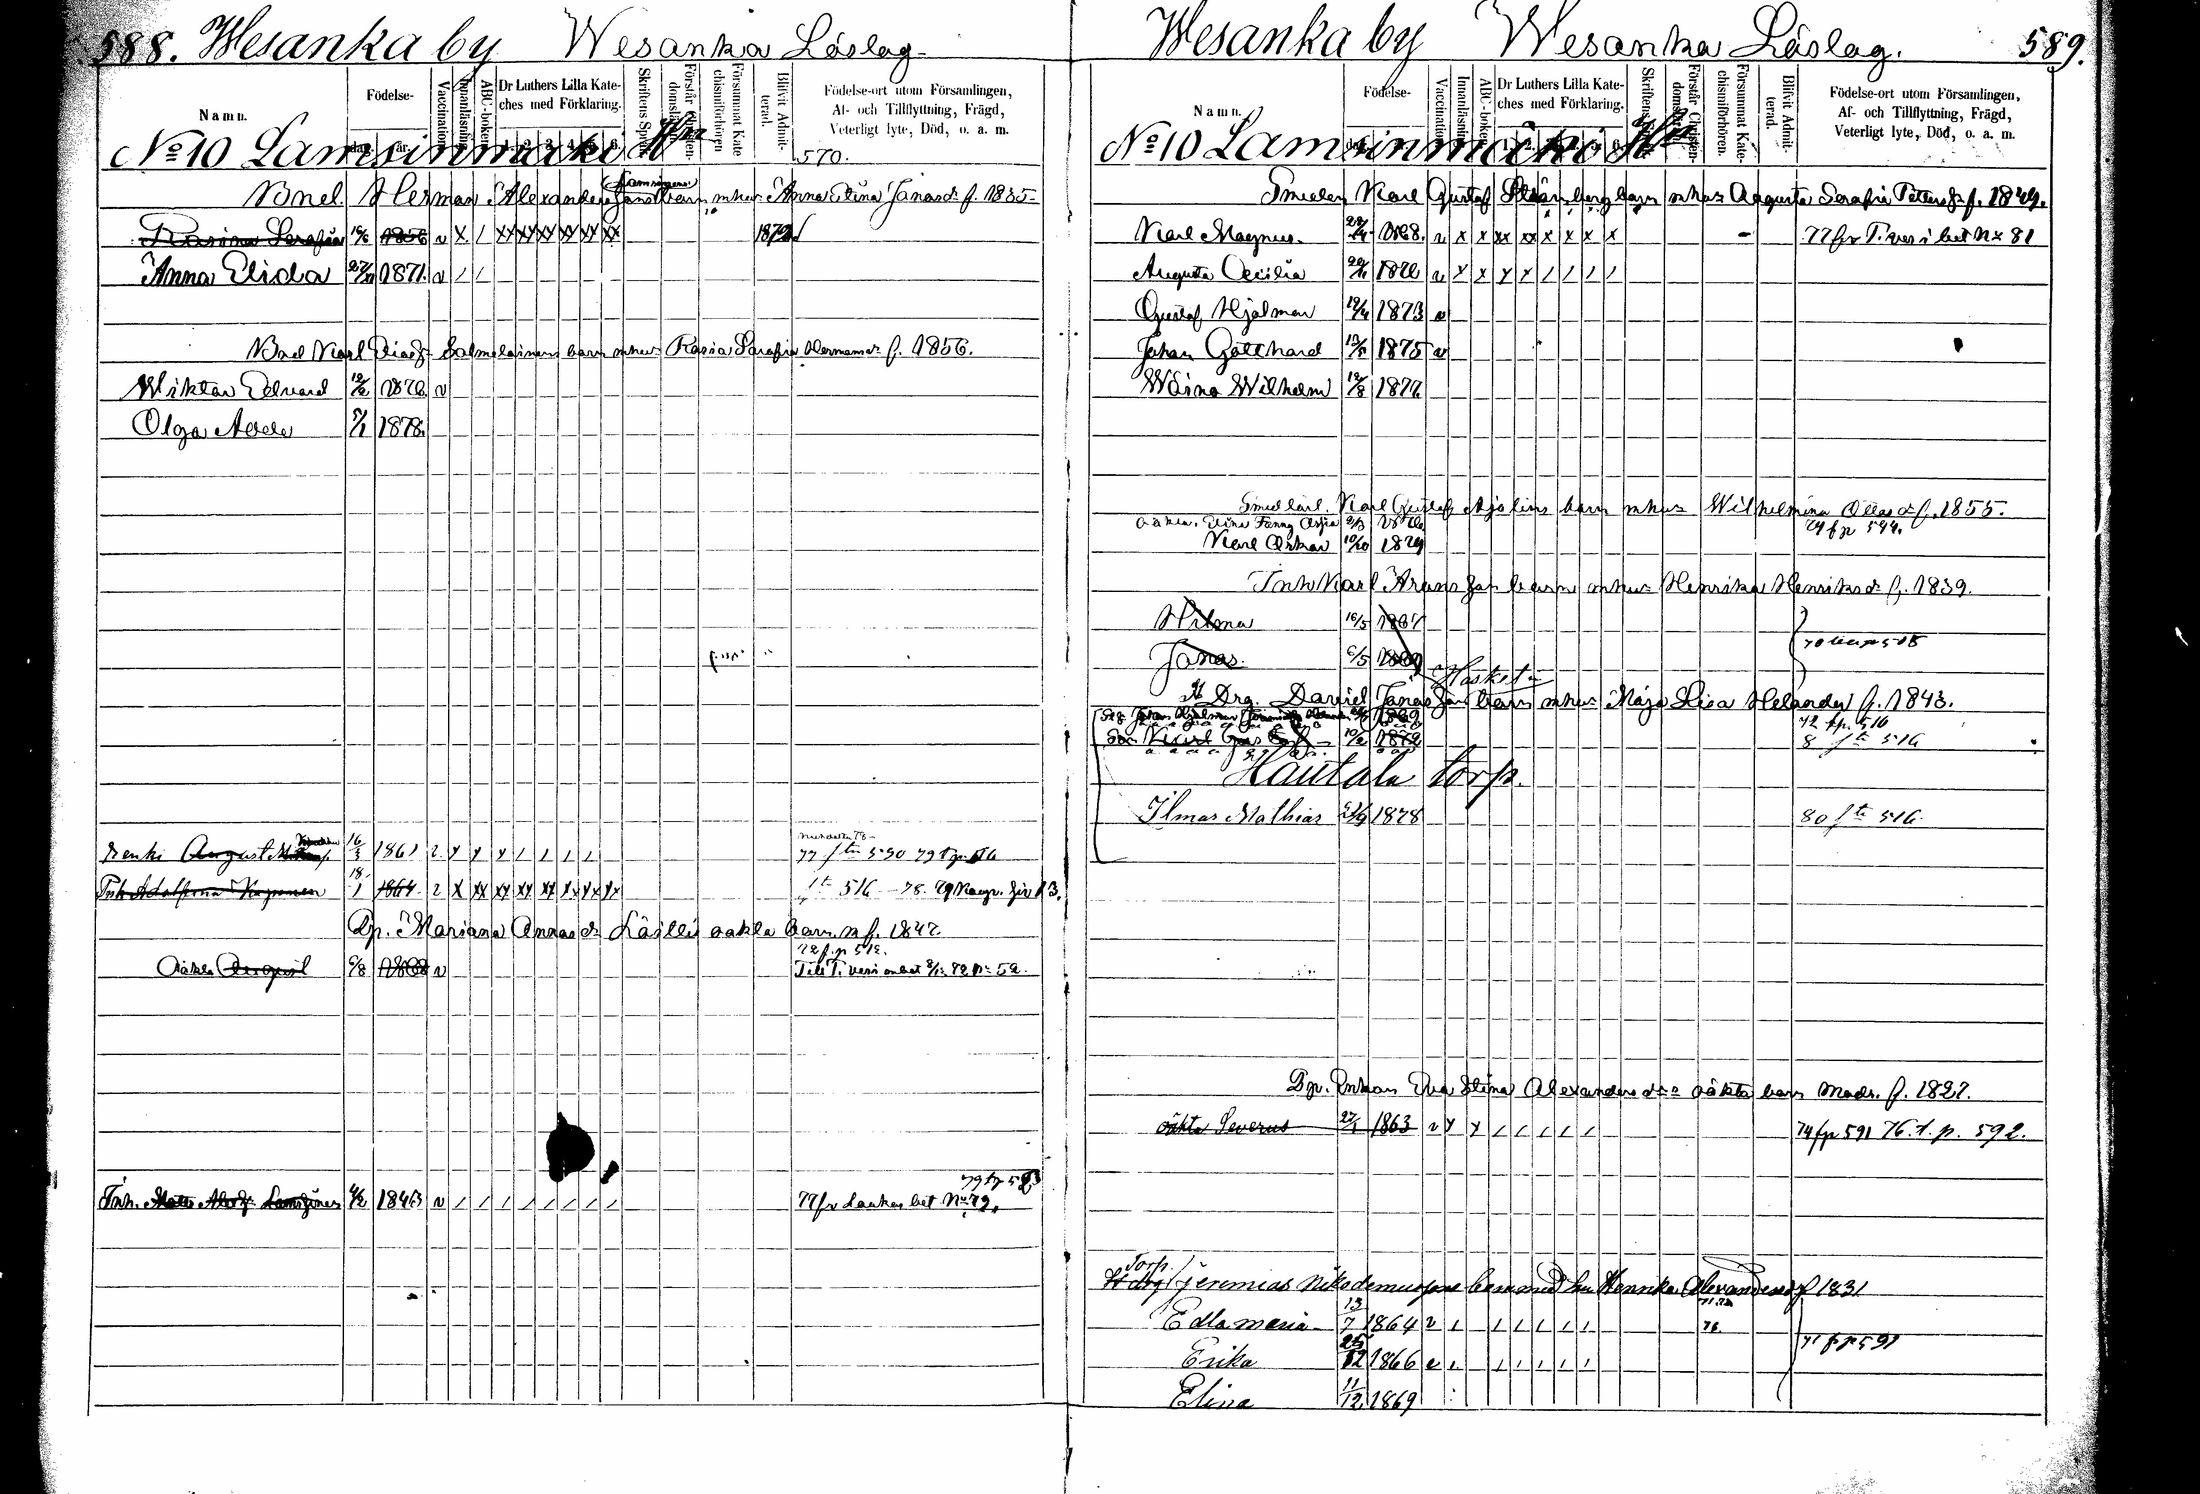 588. Wesanka by Wesanka Läslag.
Namn.
Födelse-
dag. år.
Vaccination.
Innanläsning.
ABC-boken.
Dr Luthers Lilla Kateches med Förklaring.
1. 2. 3. 4. 5. 6.
Skriftens Språk
Förstår Christendomsläran
Försummat Katechismiförhören
Blifvit Admitterad.
Födelse-ort utom Församlingen,
Af- och Tillflyttning, Frägd,
Veterligt lyte, Död, o. a. m.
No 10 Lamsinmäki Hm
570.
Bnel. Herman Alexandersson barn m hus Anna Stina Jonasd. f. 1835
Rosina Serafia 16/6 1856 v x / xx xx xx xx xx xx 1872
Anna Elida 27/11 1871. v / /
Bnel Karl Eliasf. Salmelainens barn m hus Rosia Serafia Hermansd. f. 1856.
Wiktor Edvard 12/2 1876. v
Olga Adele 5/1 1878.
Renki August 16/3 1861 v x x x / / / /
77 frn 590 79 t p. 516
Inh Adolfina Kuponen 18/1 1864 v x xx xx xx xx xx xx xx
ft 516 — 78. 79
Lp. Mariana Annas d. Läilli oäkta barn. n f. 1847.
72 f. p 512.
Oäkta August 6/8 1868 v
Inh. Matts Alexf. Lamsinen 4/2 1843 v / / / / / / / /
77 fr Laukas bet No 79.
Wesanka by Wesanka Läslag. 589.
Namn.
Födelse-
Vaccination.
Innanläsning.
ABC-boken.
Dr Luthers Lilla Kateches med Förklaring.
Skriftens Språk
Förstår Christendomsläran
Försummat Katechismiförhören.
Blifvit Admitterad.
Födelse-ort utom Församlingen,
Af- och Tillflyttning, Frägd,
Veterligt lyte, Död, o. a. m.
No 10 Lamsinmäki Hm
Smeden Karl Gustaf Stenberg barn m hus Augusta Serafia Pettersd. f. 1849.
Karl Magnus. 1868. v x x xx xx x x x x — 77 fr T. veri bet No 81
Augusta Cecilia 1870 v x x x x / / / /
Gustaf Hjalmar 19/4 1873 v
Johan Gotthard 13/5 1875 v
Wäinö Wilhelm 12/8 1877.
Smedlärl. Karl Gustaf Sjölins barn m hus Wilhelmina Ollasd. f. 1855.
oäkta. Elina Fanny 79 f p 594.
Karl Oskar 10/10 1879
Inh Karl Aronsson barn m hus Henrika Henriksd. f. 1839.
Hilma 16/5 1867
Jonas. 6/5 1869
70 till p 518
Hosket
H Drg David Jonasson barn m hus Maja Lisa Helander f. 1843.
Johan Hjalmar 1869
72 f p. 516
10/2 1872
8 ft 516
Hautala torp.
Ilmar Mathias 21/9 1878 80 ft 516.
Lp. Enkan Eva Stina Alexandersd:s oäkta barn Modr. f. 1827.
oäkta Severus 27/1 1863 v x x / / / / /
74 fp 591 76. t. p. 592.
Torp.
H drg Jeremias Nikodemussons barn med hu Henrika Alexandersd f 1831
Edla Maria 13/7 1864 v / / / / / / 76.
71 f p 591
Erika 25/12 1866 v / / / / / /
Elina 11/12 1869